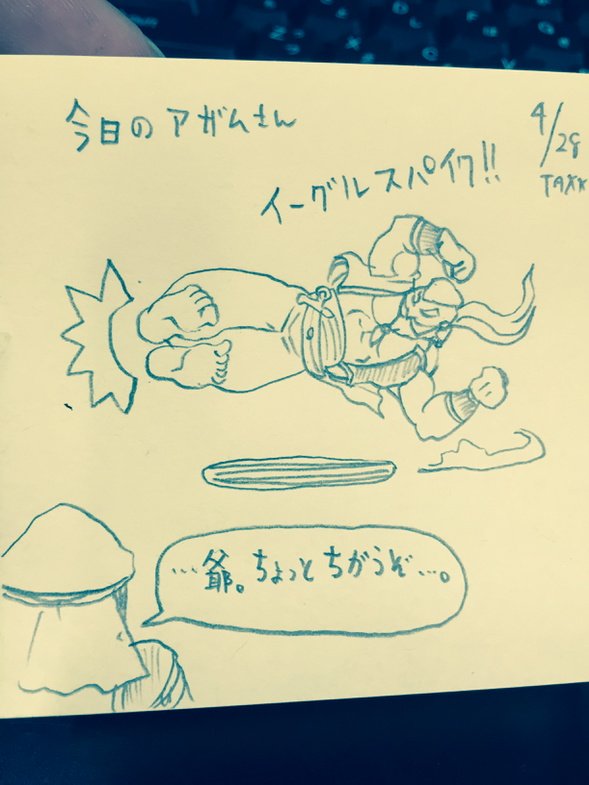 今日のアガムさん
4/28
TAXK
イーグルスパイク!!
…爺。ちょっとちがうぞ…。